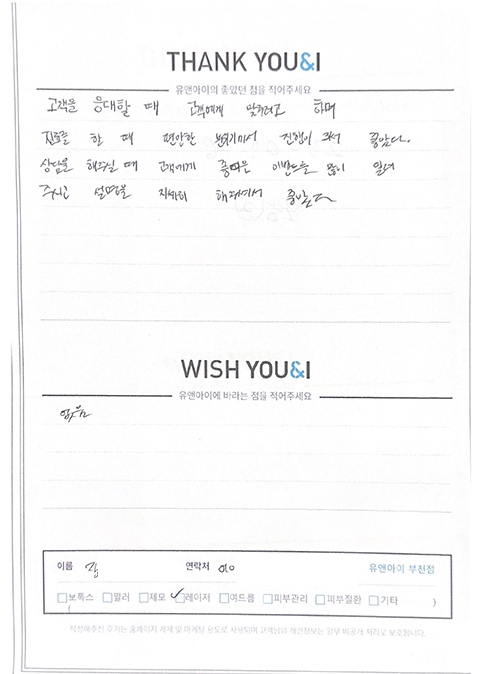 THANK YOU&I
유앤아이의 좋았던 점을 적어주세요
고객을 응대할 때 고객에게 맞추려고 하며
진료를 할 때 편안한 분위기에서 진행이 되서 좋았다.
상담을 해주실 때 고객에게 좋은 이벤트들 많이 알려
주시고 설명을 자세히 해주셔서 좋았다
WISH YOU&I
유앤아이에 바라는 점을 적어주세요
없음
이름 연락처 010 유앤아이 부천점
보톡스 필러 제모 레이저 여드름 피부관리 피부질환 기타 ( )
작성해주신 후기는 홈페이지 게재 및 마케팅 용도로 사용되며 고객님의 개인정보는 일부 비공개 처리로 보호됩니다.